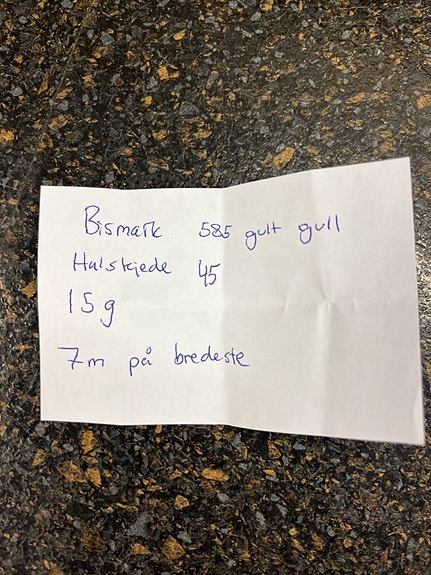 Bismark 585 gult gull
Halskjede 45
15g
7m på bredeste